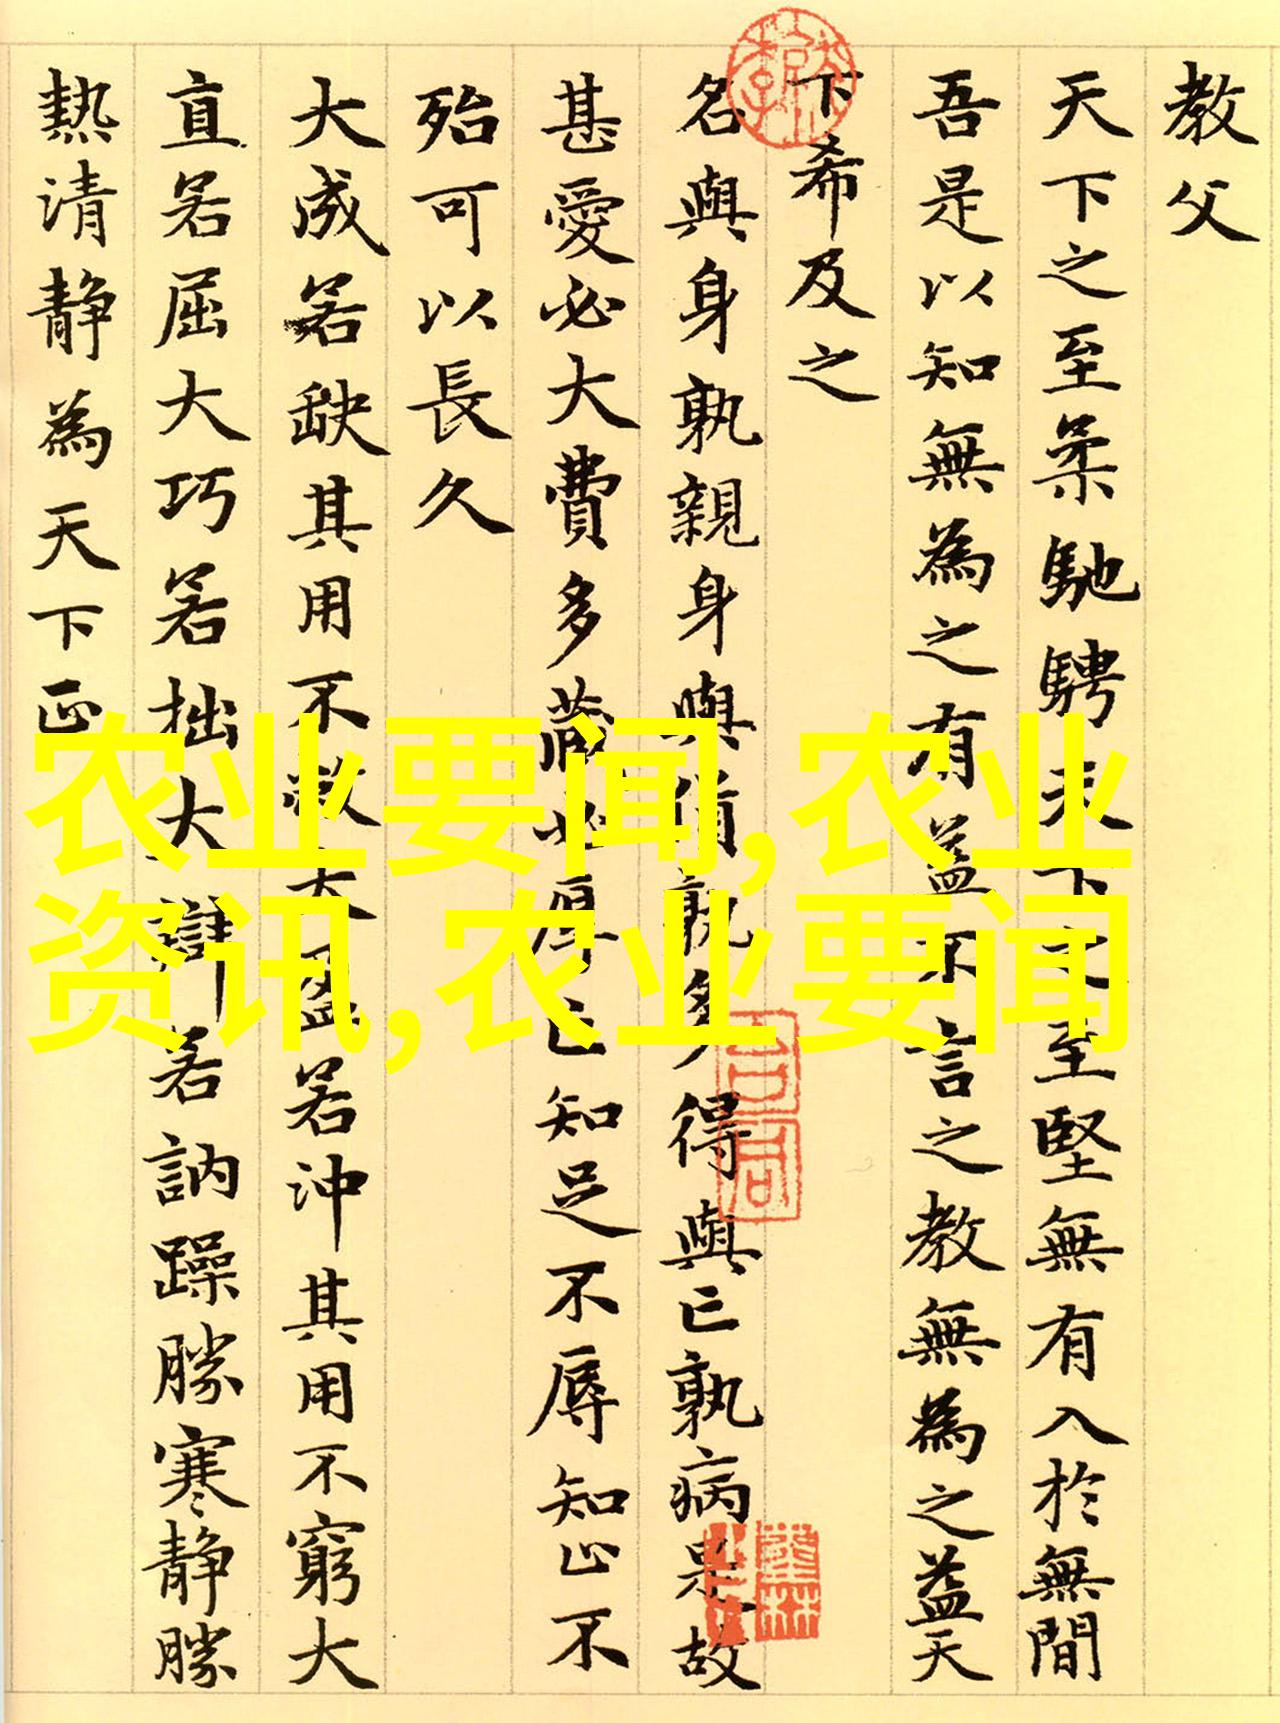 教父
天下之至柔馳騁天下之至堅無有入於無間
吾是以知無為之有益不言之教無為之益天
下希及之
名與身孰親身與貨孰多得與亡孰病是故
甚愛必大費多藏必厚亡知足不辱知止不
殆可以長久
大成若缺其用不敝大盈若沖其用不窮大
直若屈大巧若拙大辯若訥躁勝寒靜勝
熱清靜為天下正
农业要闻,农业
资讯,农业要闻